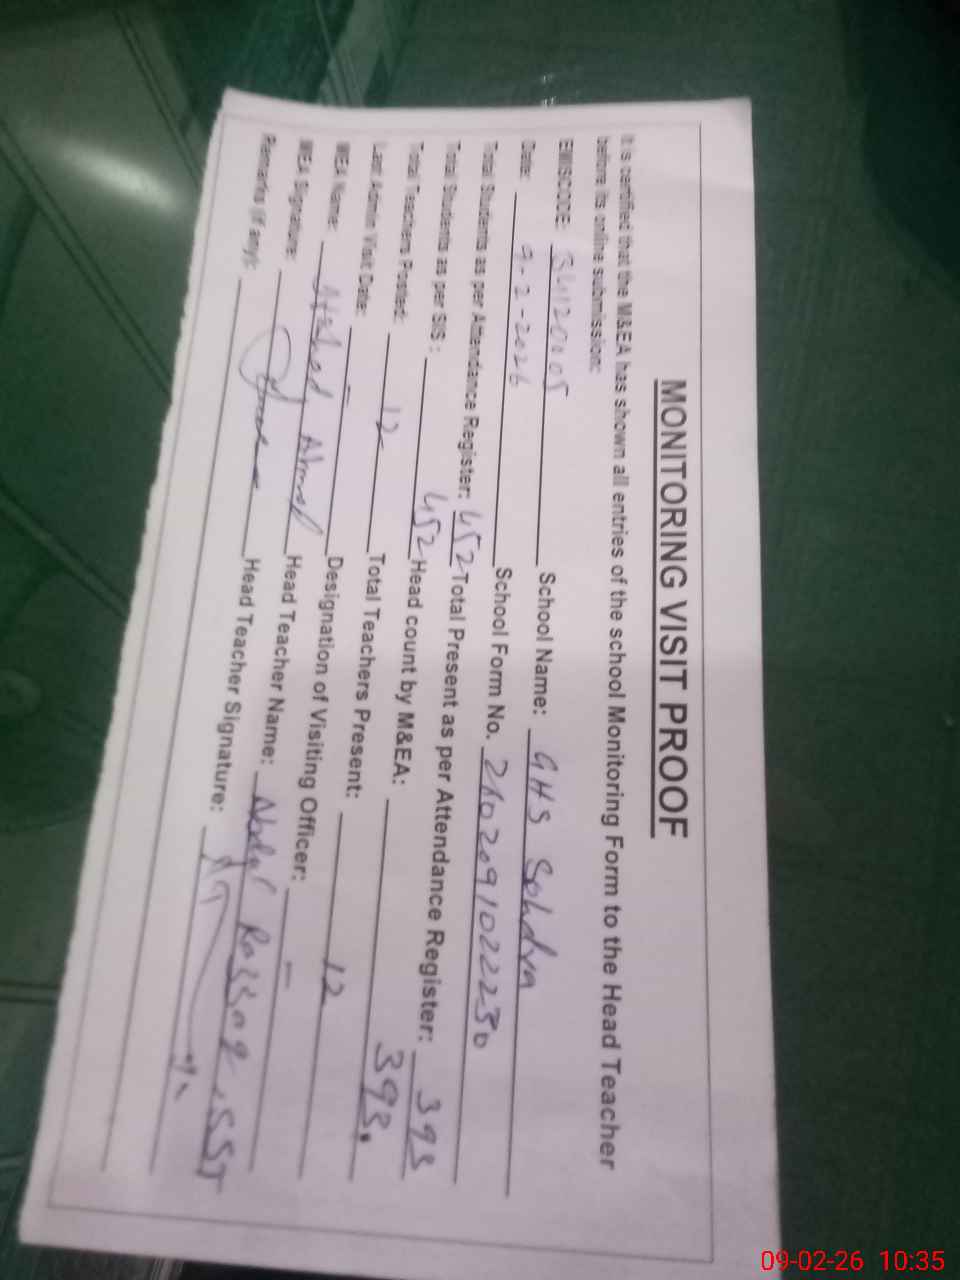 MONITORING VISIT PROOF
It is certified that the M&EA has shown all entries of the school Monitoring Form to the Head Teacher
before its online submission:
EMISCODE: 34120105 School Name: GHS Sohdya
Date: 9-2-2026 School Form No. 2102091022230
Total Students as per Attendance Register: 452 Total Present as per Attendance Register: 393
Total Students as per SIS: 452 Head count by M&EA: 393.
Total Teachers Posted: 12 Total Teachers Present: 12
Last Admin Visit Date: - Designation of Visiting Officer: -
MEA Name: Ahmad Head Teacher Name: Abdul Razzaq, SST
MEA Signature: Head Teacher Signature:
Remarks (if any):
09-02-26 10:35